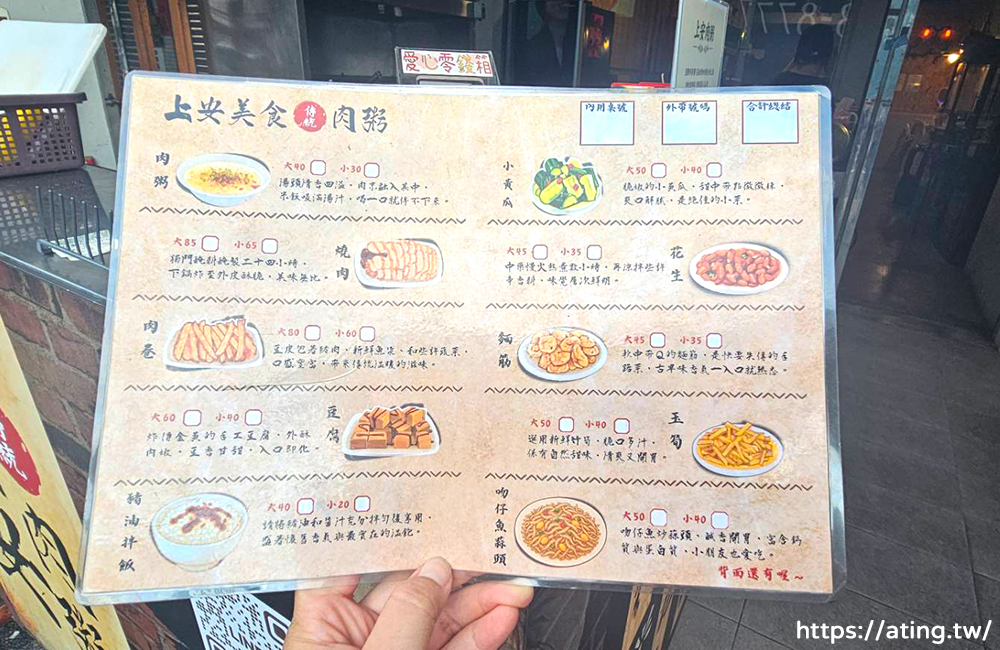 愛心零錢箱
上安美食 傳統 肉粥
內用桌號
外帶號碼
合計總結
肉粥
大40 小30
湯頭清香四溢,肉末融入其中,
米飯吸滿湯汁,喝一口就停不下來。
大85 小65
燒肉
獨門醃料醃製二十四小時,
下鍋炸至外皮酥脆,美味無比。
肉卷
大80 小60
豆皮包著豬肉、新鮮魚漿、和些許蔬菜,
口感豐富,帶來傳統溫暖的滋味。
大60 小40
豆腐
炸得金黃的手工豆腐,外酥
內嫩,豆香甘甜,入口即化。
豬油拌飯
大40 小20
請將豬油和醬汁充分拌勻後享用,
藏著懷舊香氣與最實在的溫飽。
小黃瓜
大50 小40
脆嫩的小黃瓜,甜中帶點微微辣,
爽口解膩,是絕佳的小菜。
大45 小35
花生
中藥慢火熬煮數小時,再淋拌些許
辛香料,味覺層次鮮明。
麵筋
大45 小35
軟中帶Q的麵筋,是快要失傳的手
路菜,古早味香氣一入口就熟悉。
大50 小40
玉筍
選用新鮮竹筍,脆口多汁,
保有自然甜味,清爽又開胃。
吻仔魚蒜頭
大50 小40
吻仔魚炒蒜頭,鹹香開胃,富含鈣
質與蛋白質,小朋友也愛吃。
背面還有喔~
https://ating.tw/